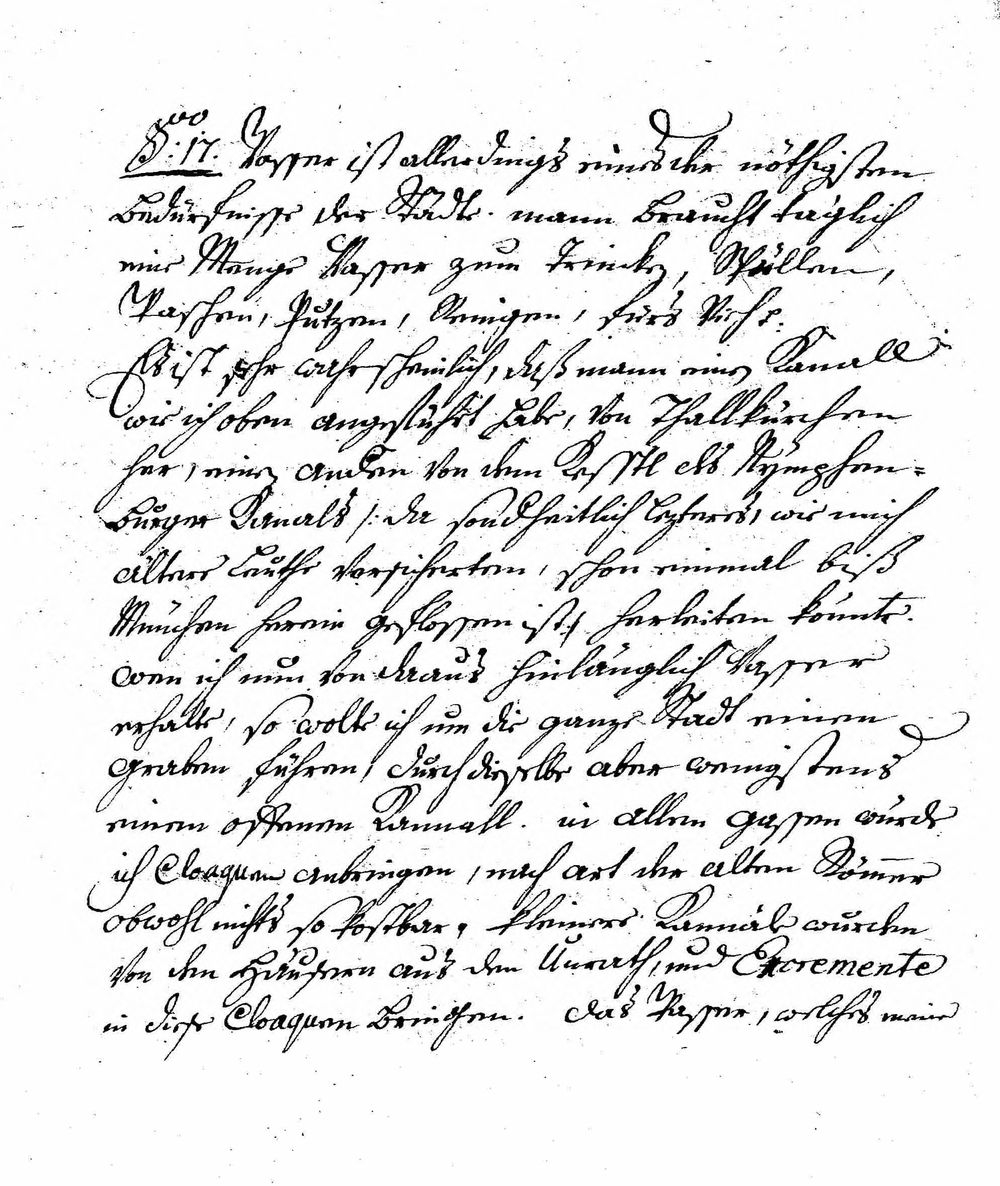 §: 17. Wasser ist allerdings eines der nöthigsten
Bedürfnisse der Städte. mann braucht täglich
eine Menge Wasser zum Trincken, Spüllen,
Waschen, Putzen, Reinigen, fürs Vieh
Es ist sehr wahrscheinlich, daß mann einen Kanall
wie ich oben angeführt habe, von Thallkürchen
her, einen anden von dem Kesstl des Nÿmphen=
burger Kanals /: da sondheitlich lezteres, wie mich
ältere Leuthe versicherten, schon einmal biß
München herein geflossen ist :/ herleiten könnte.
wen ich nun von daaus hinlänglich Wasser
erhalte, so wolte ich um die ganze Stadt einen
Graben führen, durch dieselbe aber wenigstens
einen offenen Kannahl. in allen gassen würde
ich Cloaquen anbringen, nach art der alten Römer
obwohl nichts so kostbar, kleinere Kannäle wurden
von den Häusern aus den Unrath, und Excremente
in diese Cloaquen bringen. das Wasser, welches meine